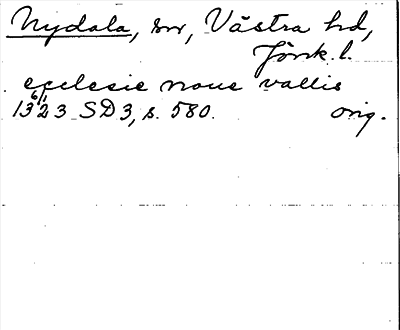 Nydala, sn, Västra hd,
Jönk. l.
ecclesie noue vallis
13 6/1 23 SD 3, s. 580. orig.